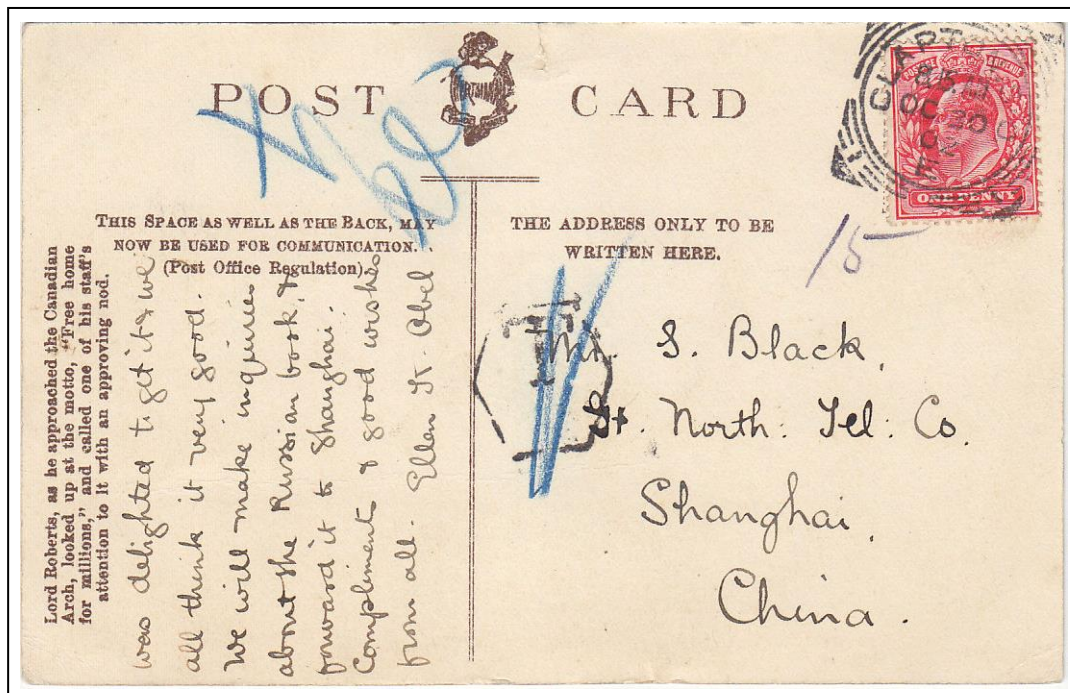 POST CARD
THIS SPACE AS WELL AS THE BACK, MAY
NOW BE USED FOR COMMUNICATION.
(Post Office Regulation).
THE ADDRESS ONLY TO BE
WRITTEN HERE.
Lord Roberts, as he approached the Canadian
Arch, looked up at the motto, "Free home
for millions," and called one of his staff's
attention to it with an approving nod.
was delighted to get it & we
all think it very good.
We will make inquiries
about the Russian book, &
forward it to Shanghai.
Compliments & good wishes
from all. Ellen St. Abel
Mr. S. Black,
Gt. North. Tel. Co.
Shanghai,
China.
T
15
POSTAGE & REVENUE
ONE PENNY
OC 30
02